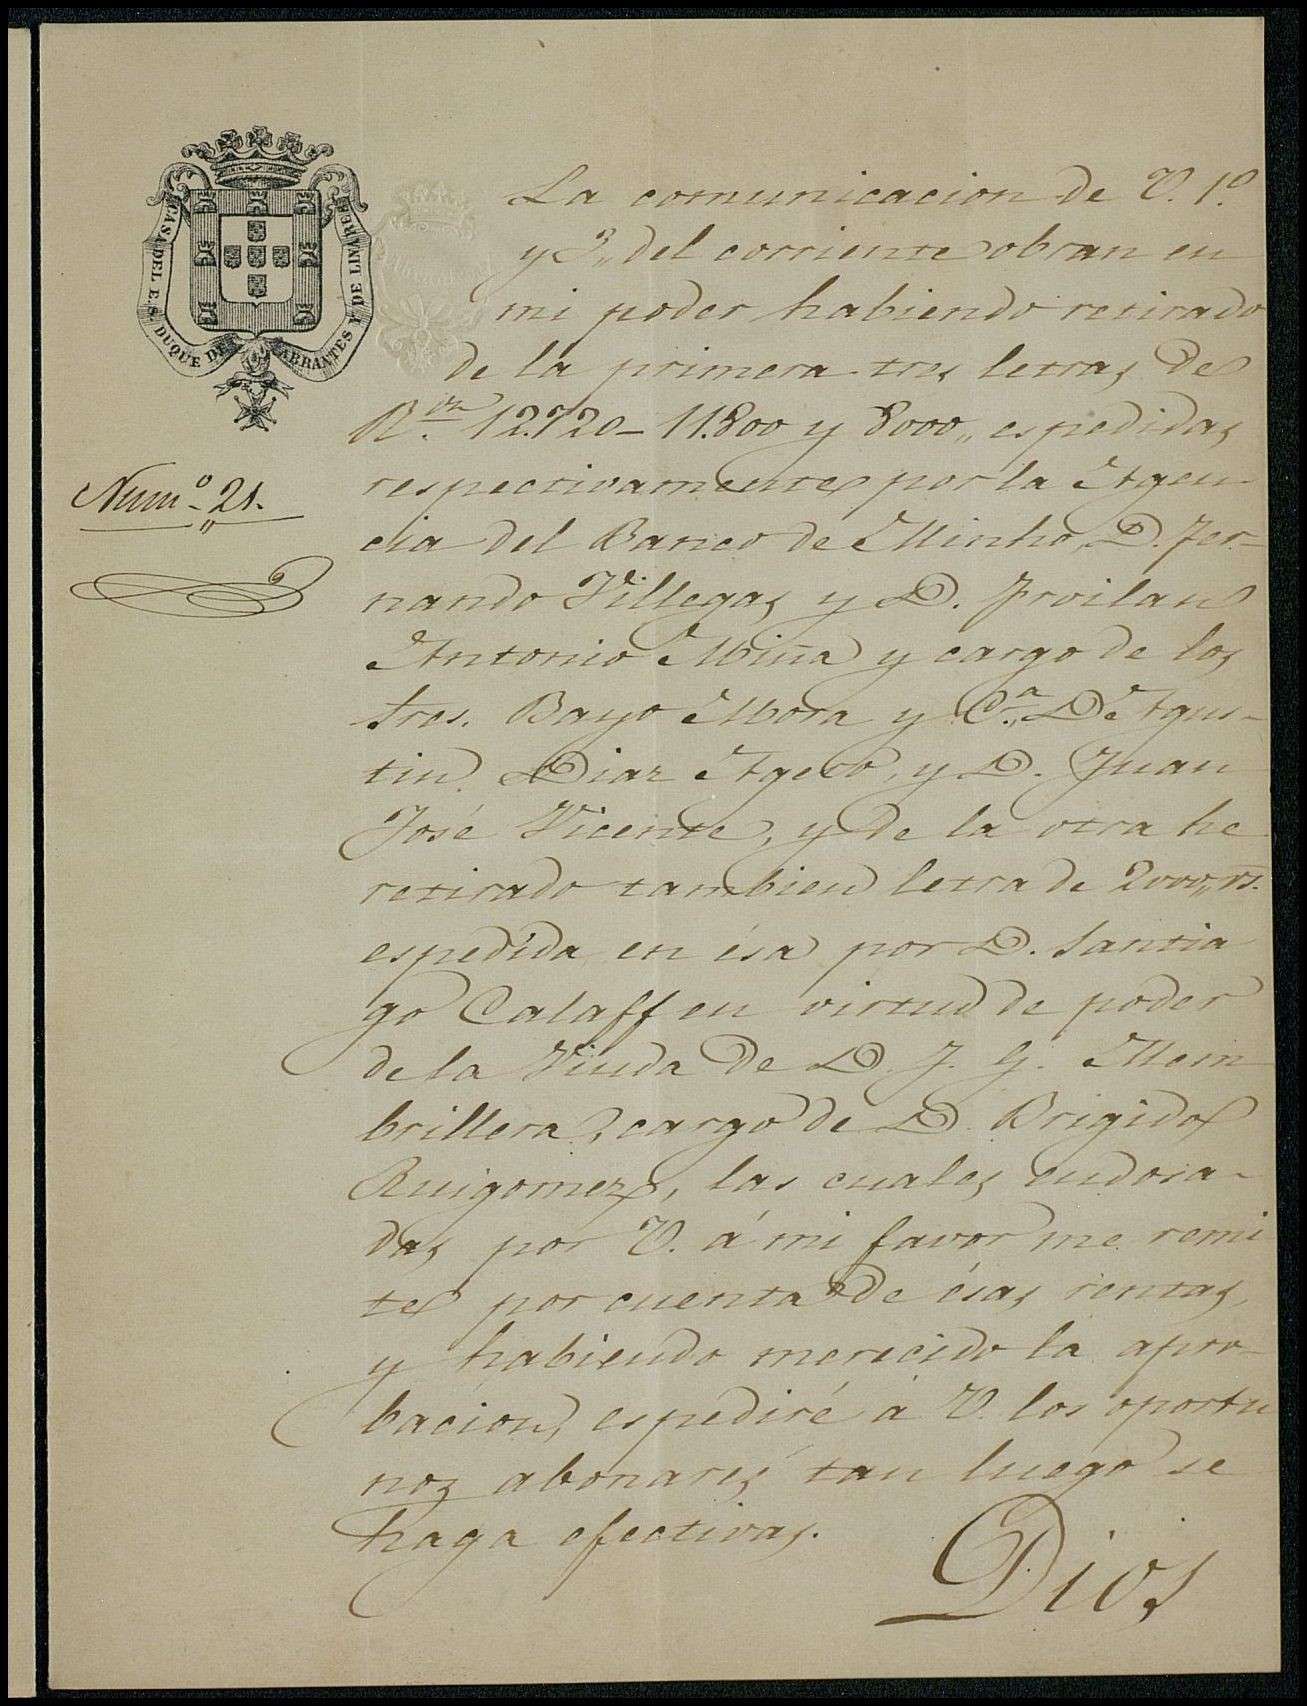 CASA DEL E.S. DUQUE DE ABRANTES Y DE LINARES
Numº 21.
La comunicacion de V. 1º
y 3,, del corriente obran en
mi poder habiendo retirado
de la primera tres letras de
R.ˢ ᵛⁿ 12.720 - 11.800 y 8000,, espedidas
respectivamente por la Agen-
cia del Banco de Minho, D. Fer-
nando Villegas y D. Froilan
Antonio Miña y cargo de los
Sres. Bayo Mora y C.ª, D. Agus-
tin Diaz Agero, y D. Juan
José Vicente, y de la otra he
retirado tambien letra de 2000,, rs.
espedida en ésa por D. Santia
go Calaff en virtud de poder
de la Viuda de D. J. G. Mem
brillera, cargo de D. Brigido
Ruigomez, las cuales endosa-
das por V. á mi favor me remi
te por cuenta de ésas rentas,
y habiendo merecido la apro-
bacion, espediré á V. los oportu
nos abonares tan luego se
haga efectivas.
Dios